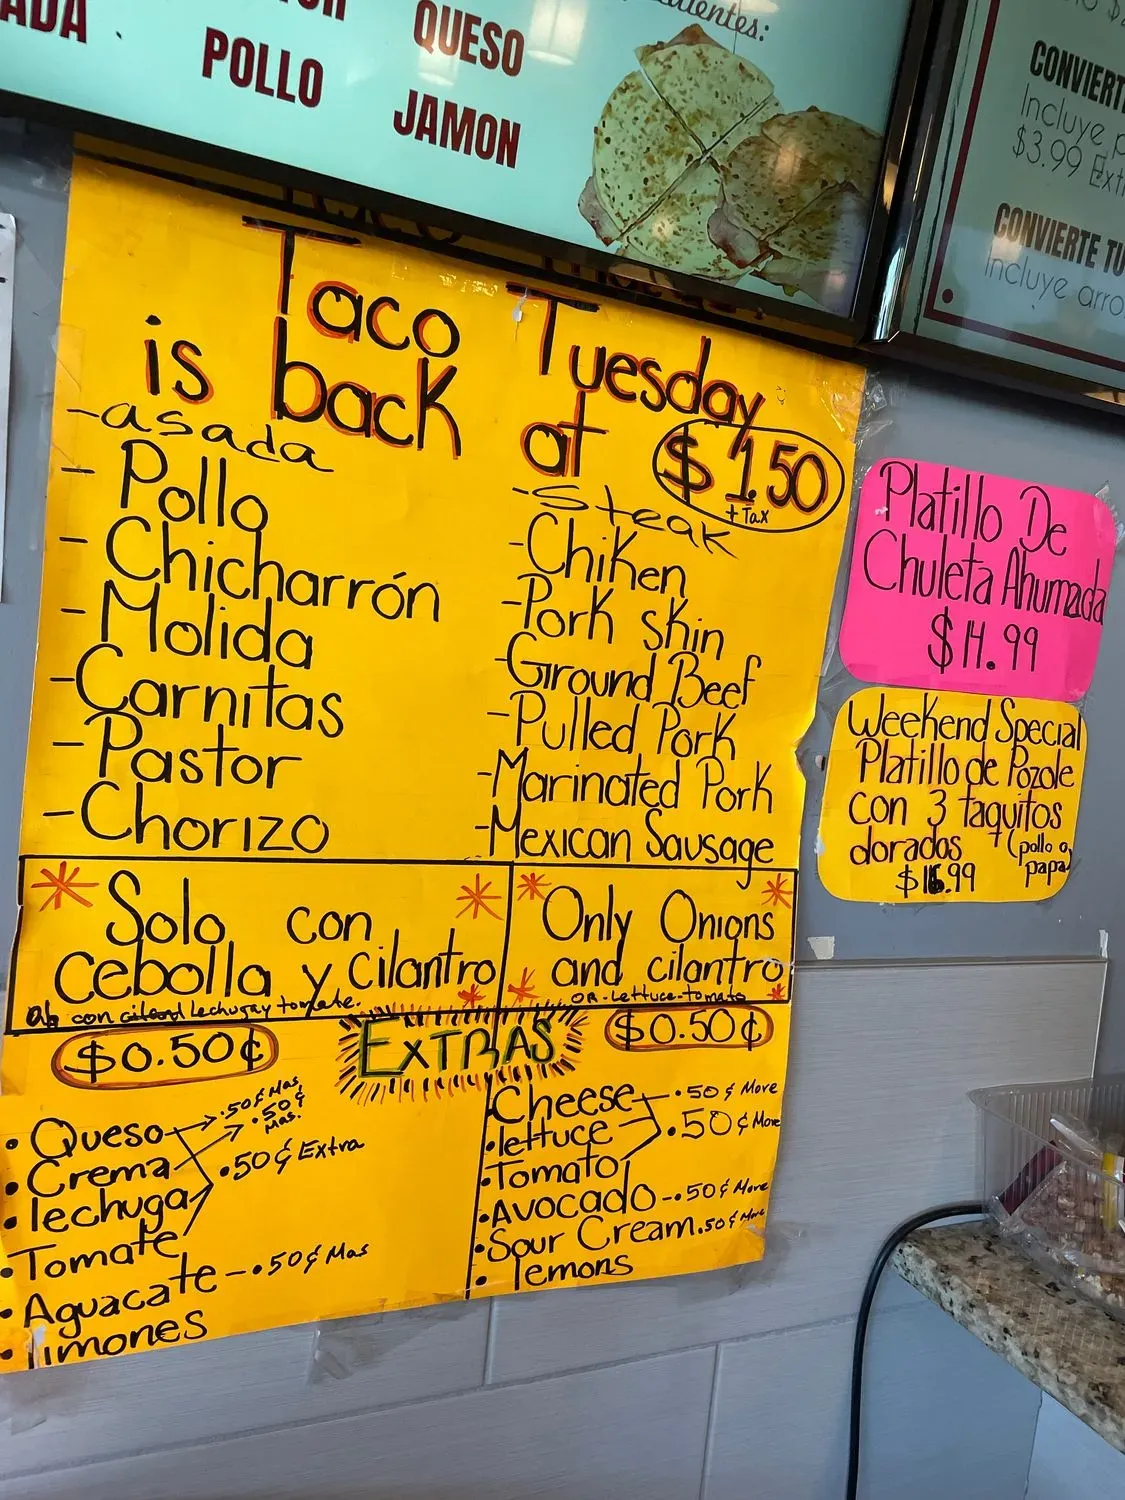 ADA
POLLO
QUESO
JAMON
CONVIERTE
Incluye
$3.99
CONVIERTE TU
Incluye
Taco Tuesday
is back at $1.50
+ Tax
-asada
- Pollo
- Chicharrón
- Molida
-Carnitas
-Pastor
-Chorizo
-Steak
-Chiken
-Pork skin
-Ground Beef
-Pulled Pork
-Marinated Pork
-Mexican Sausage
Solo con
Cebolla y Cilantro
con lechuga y tomate.
Only Onions
and cilantro
OR-Lettuce-tomato
$0.50¢
EXTRAS
$0.50¢
• Queso .50¢ Mas
• Crema .50¢ Mas.
• lechuga .50¢ Extra
• Tomate
• Aguacate - .50¢ Mas
• limones
Cheese .50¢ More
• lettuce .50¢ More
• Tomato
• Avocado - .50¢ More
• Sour Cream .50¢ More
• lemons
Platillo De
Chuleta Ahumada
$14.99
Weekend Special
Platillo de Pozole
con 3 taquitos
dorados (pollo o
papa)
$16.99